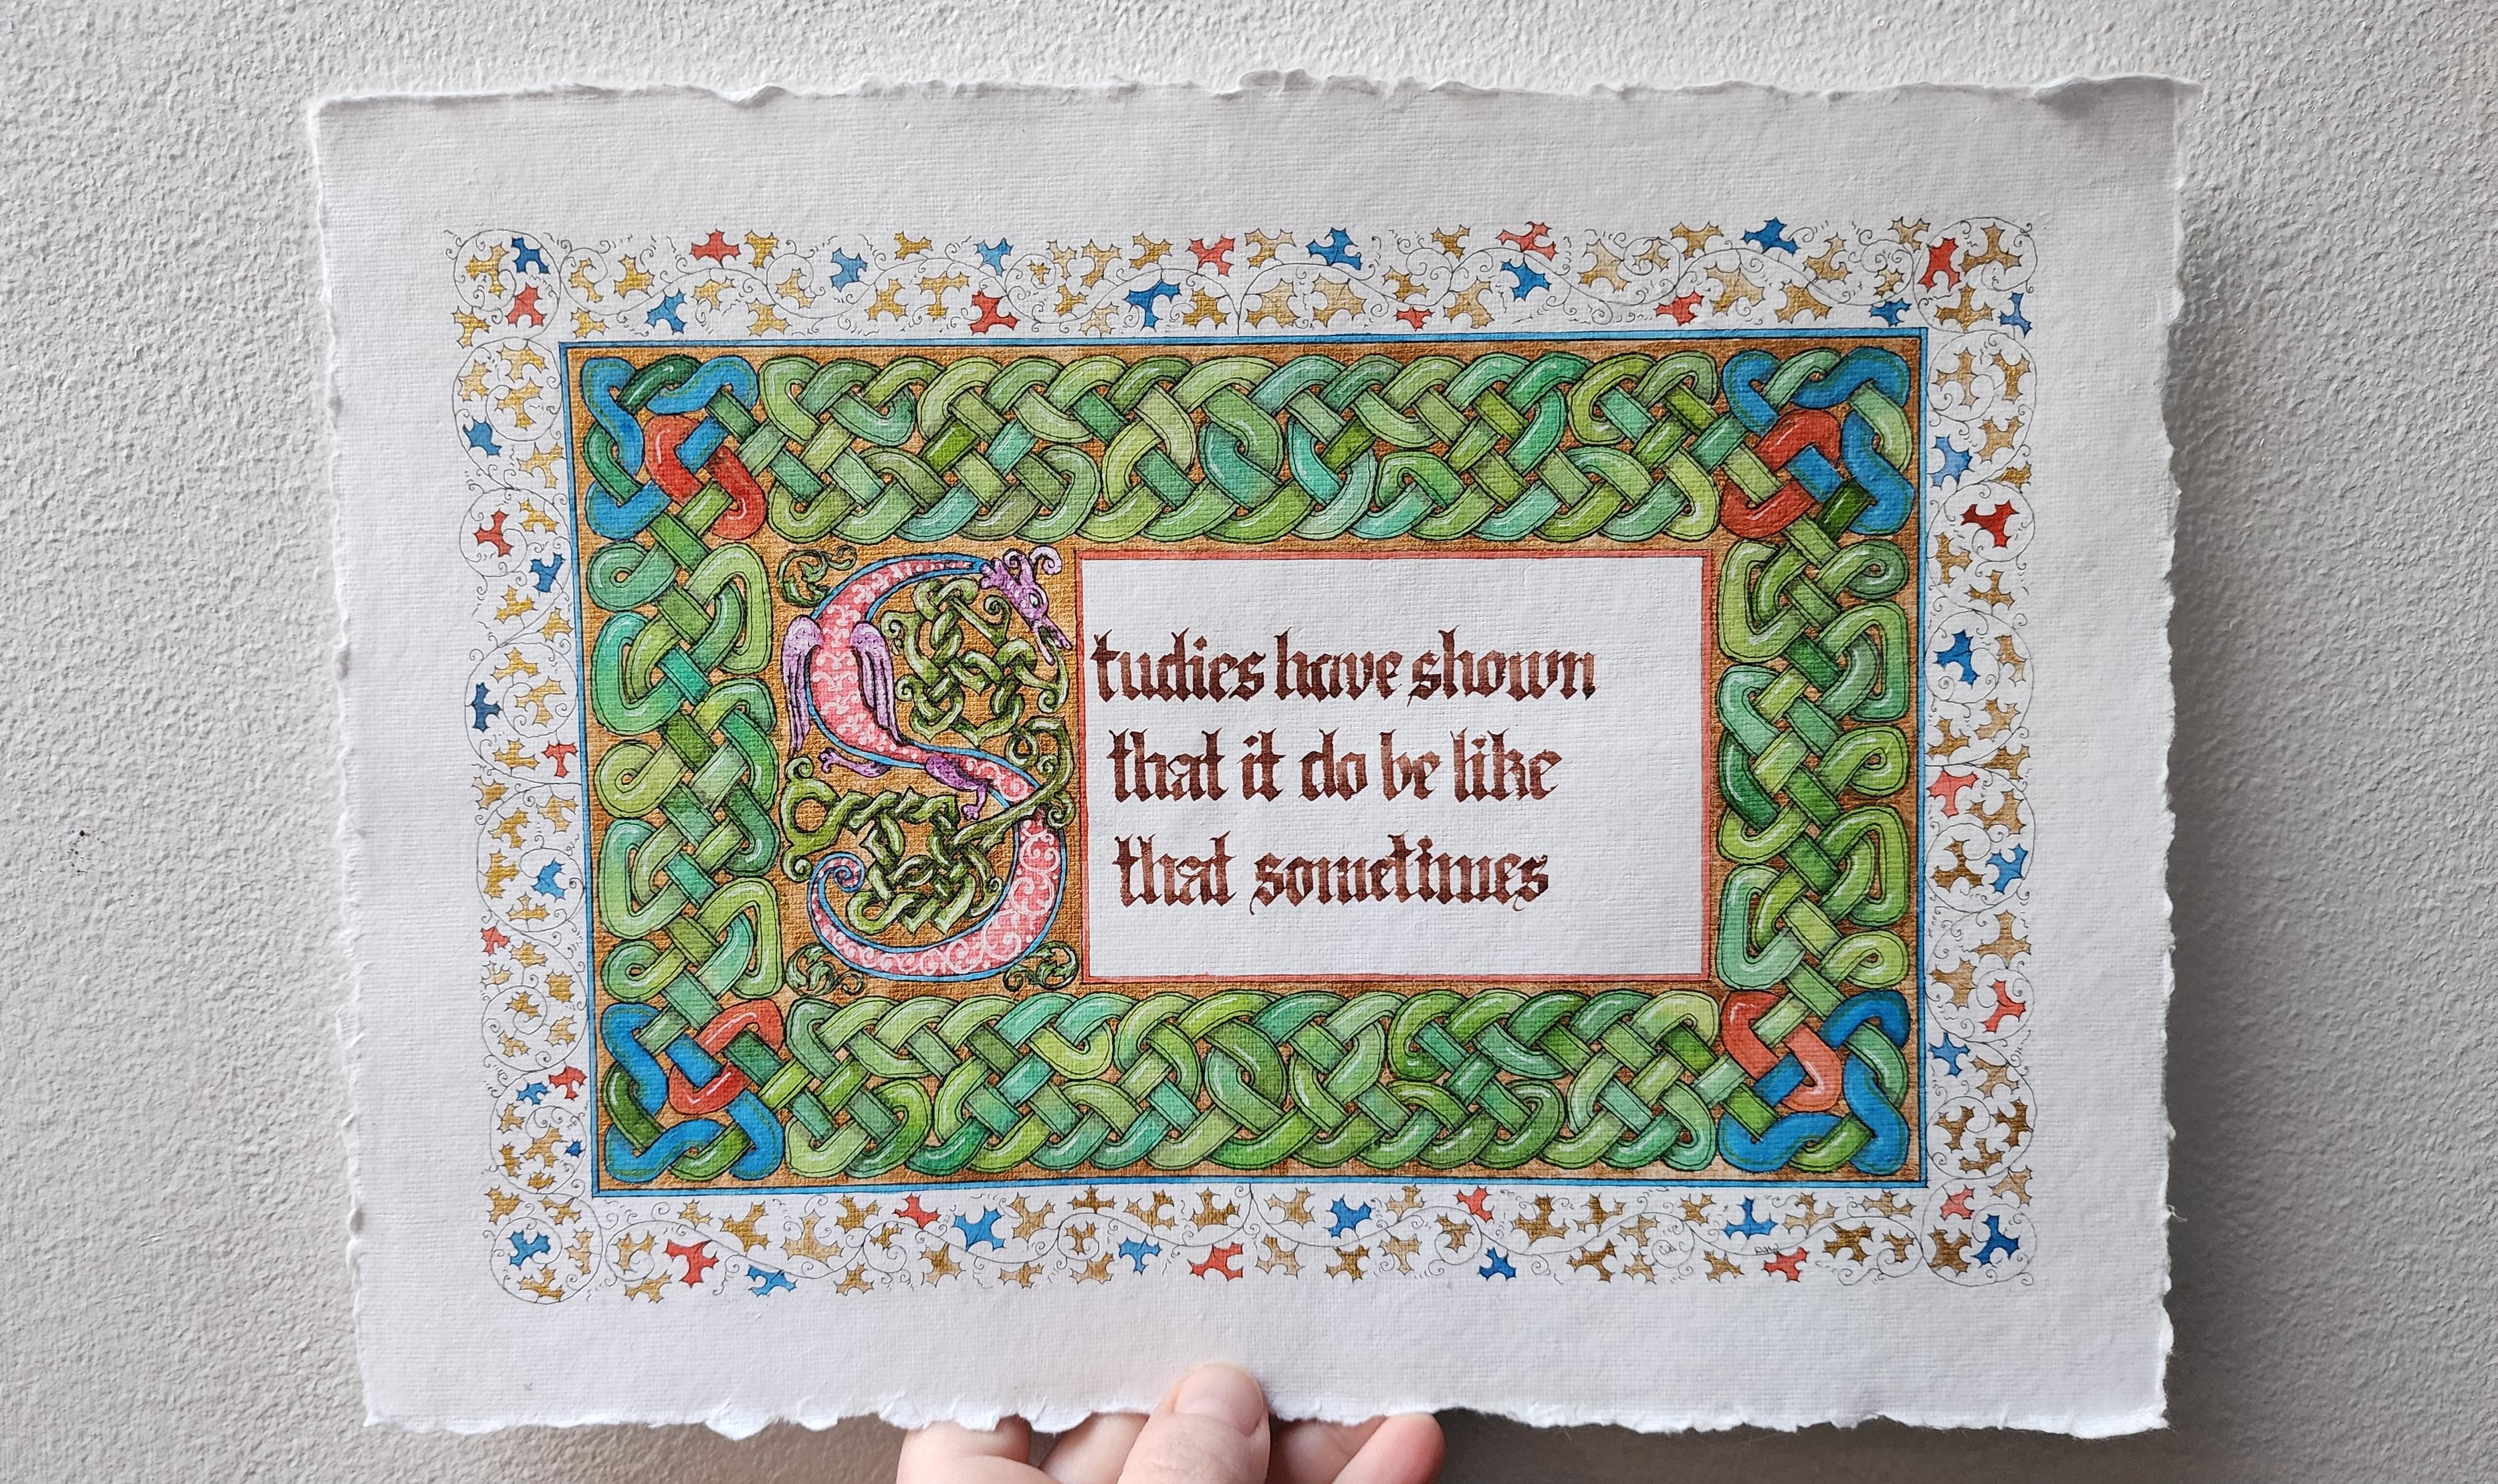 Studies have shown
that it do be like
that sometimes